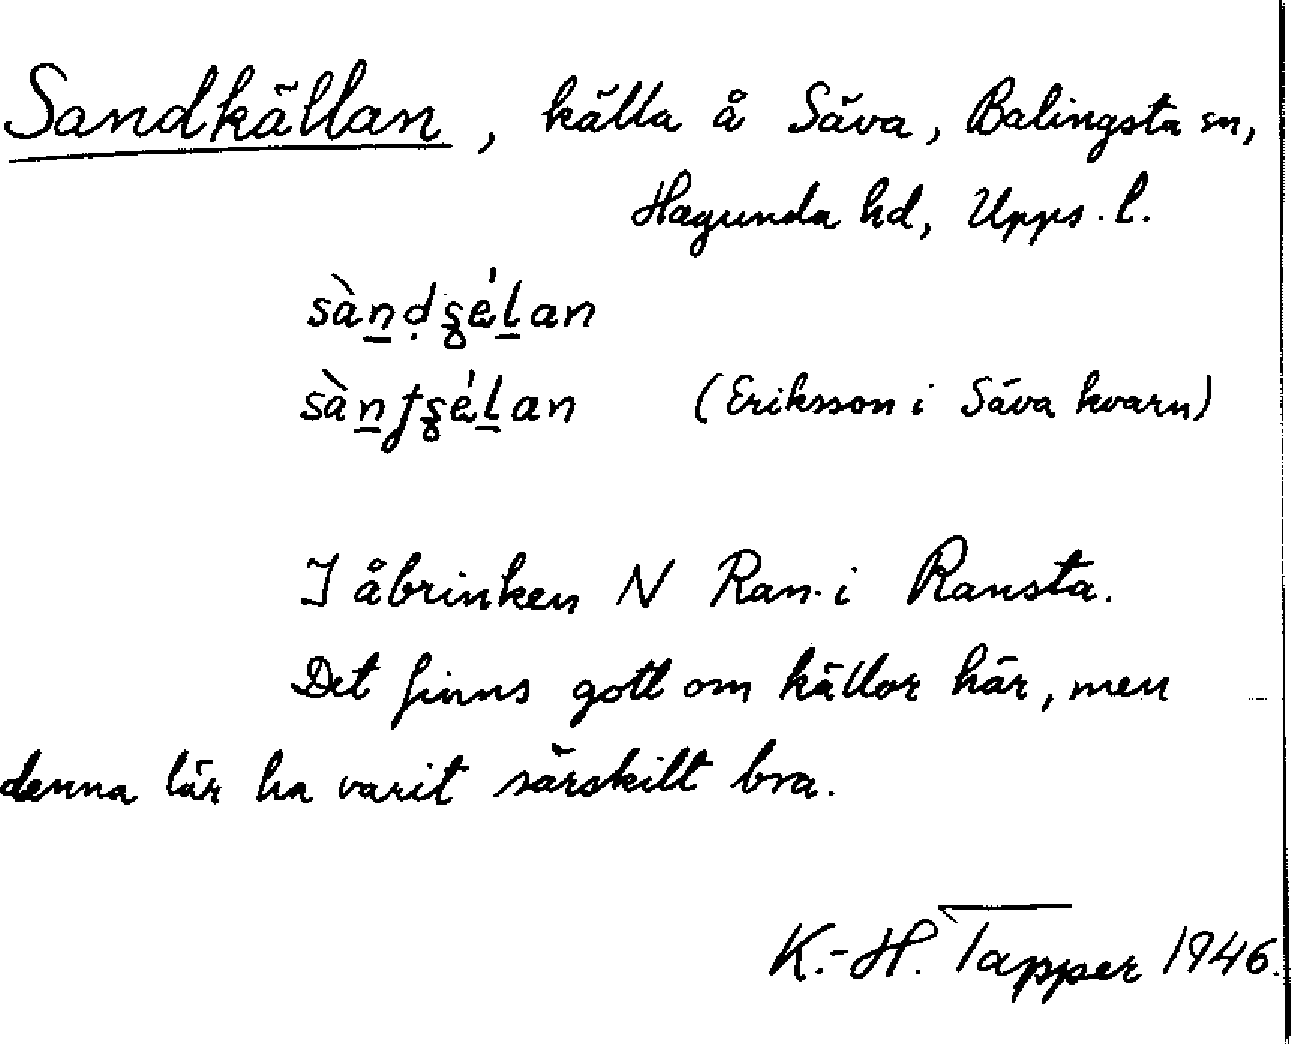 Sandkällan, källa å Säva, Balingsta sn,
Hagunda hd, Upps. l.
sàn̲ḍʂél̲an
sàn̲ɟʂél̲an (Eriksson i Säva kvarn)
I åbrinken N Ran. i Ransta.
Det finns gott om källor här, men
denna lär ha varit särskilt bra.
K.-H. Tapper 1946.